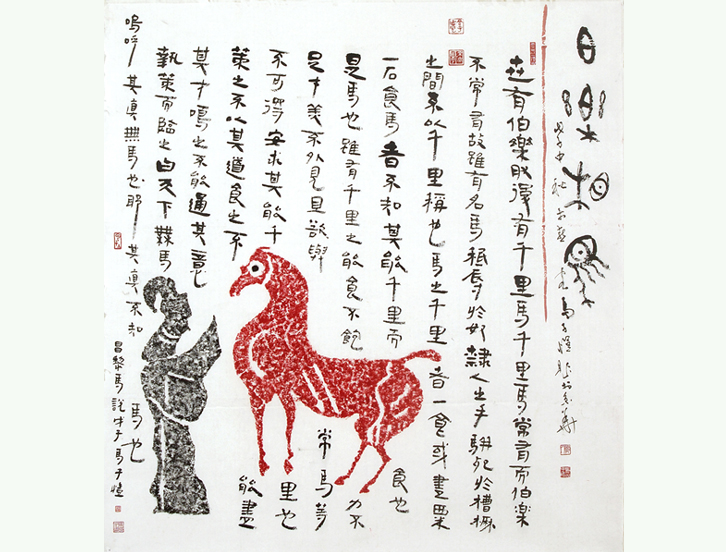 白樂相馬
世有伯樂然後有千里馬千里馬常有而伯樂
不常有故雖有名馬祇辱於奴隸人之手駢死於槽櫪
之間不以千里稱也馬之千里者一食或盡粟
一石食馬者不知其能千里而食也
是馬也雖有千里之能食不飽力不
足才美不外見且欲與常馬等
不可得安求其能千里也
策之不以其道食之不能盡
其才鳴之不能通其意
執策而臨之曰天下無馬
嗚呼其真無馬也耶其真不知馬也
昌黎馬說才子馬子愷